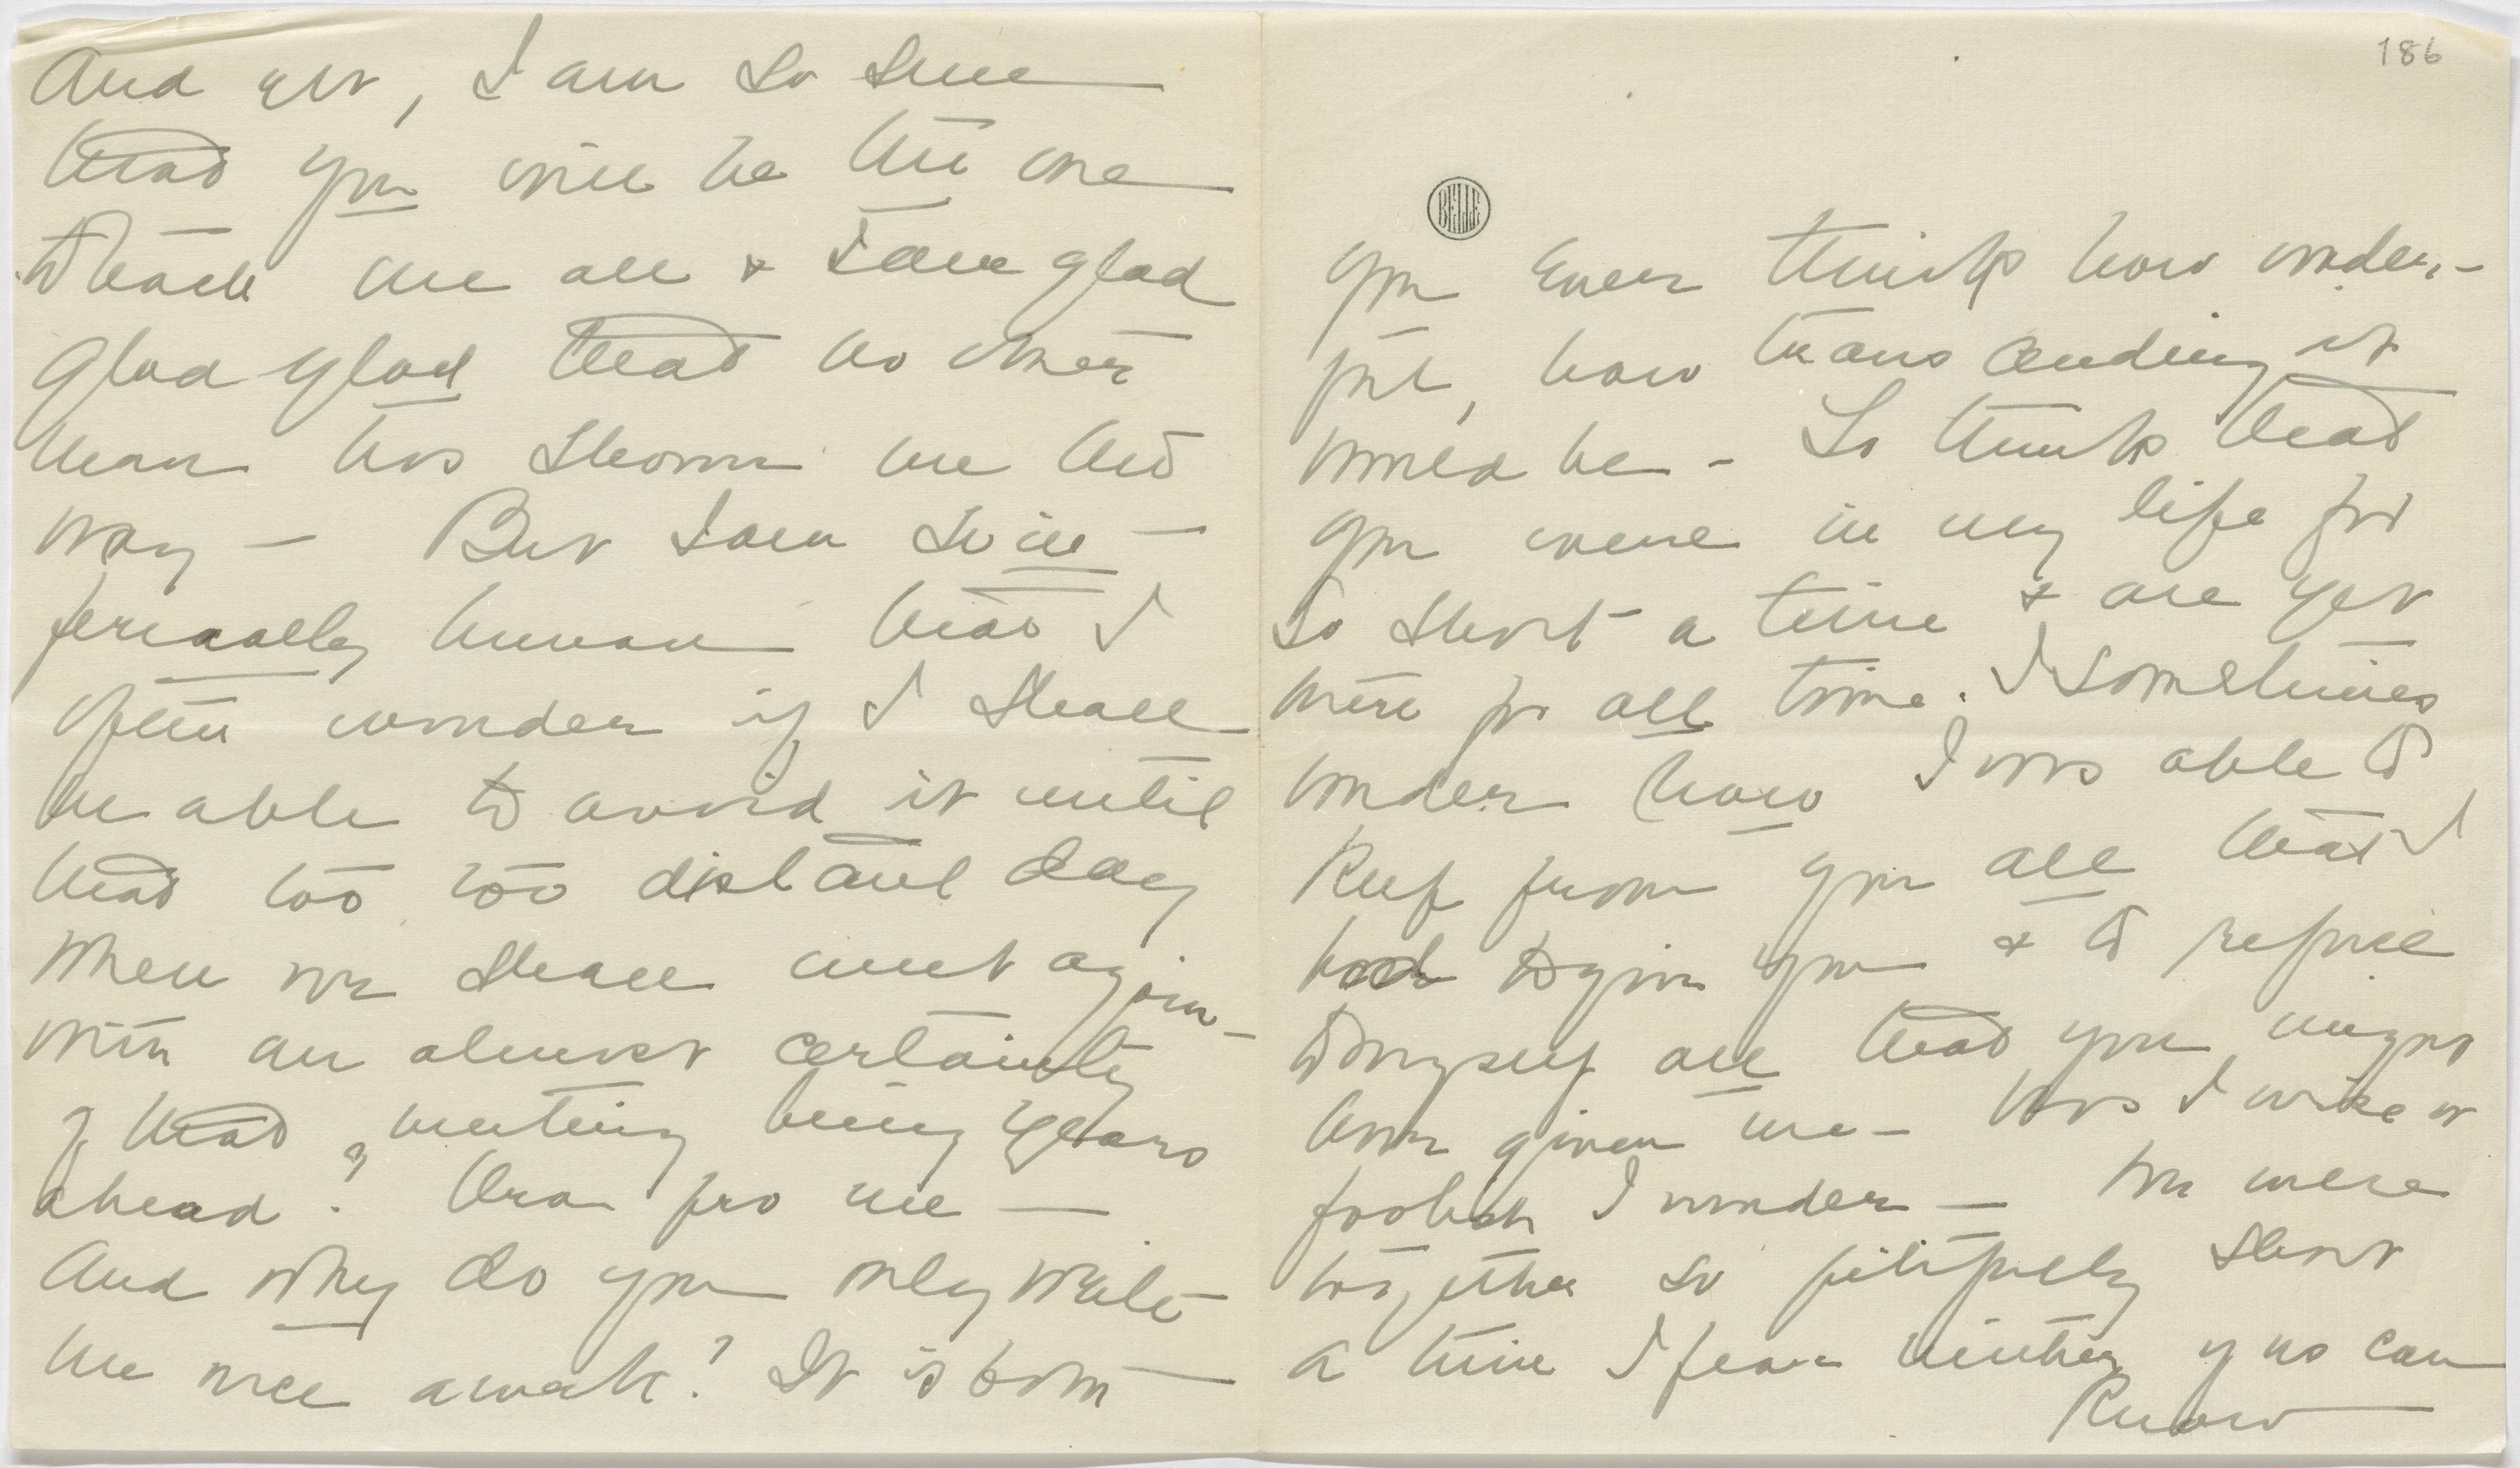 And yet, I am so sure
that you will be the one
to teach me all & I am glad
glad glad that no other
man has shown me the
way — But I am so in-
fernally human that I
often wonder if I shall
be able to avoid it until
that too too distant day
when we shall meet again -
with an almost certainty
of that meeting being years
ahead? Ora pro me —
And why do you only write
me once a week? It is both
186
BELLE
you ever think how wonder-
ful, how transcending it
would be - To think that
you were in my life for
so short a time & are yet
there for all time. I sometimes
wonder how I was able to
keep from you all that I
had to give you & to refuse
to myself all that you might
have given me - Was I wise or
foolish I wonder — We were
together so pitifully short
a time I fear neither of us can
know